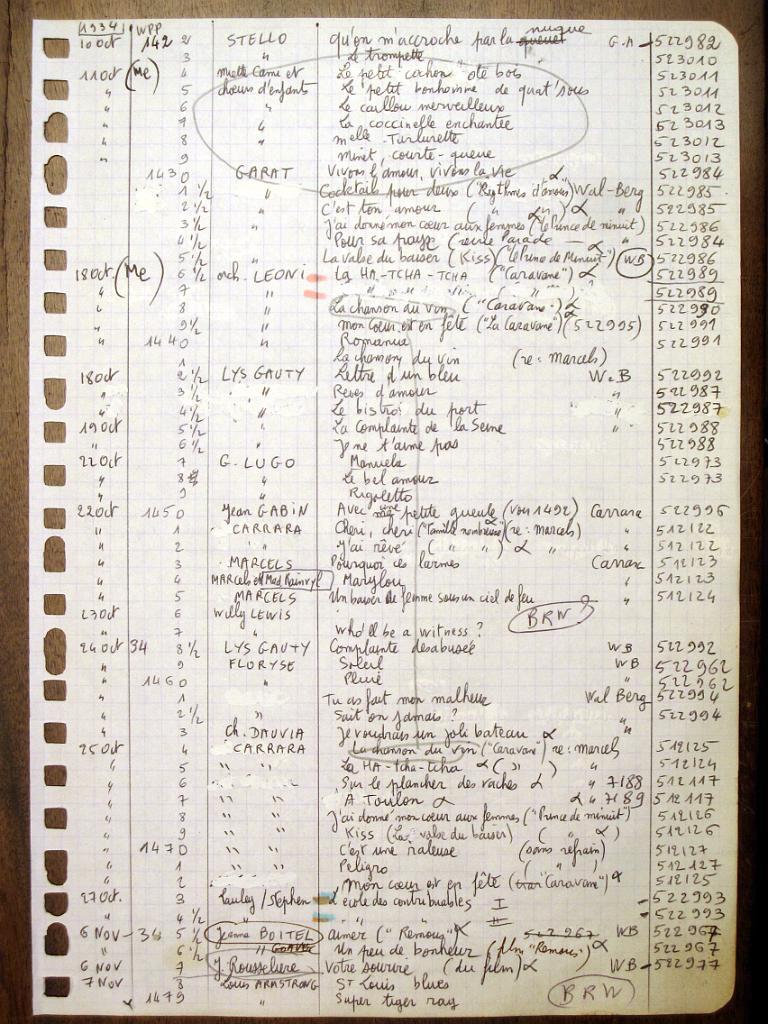 1934 WPP
10 Oct 142 2 STELLO qu'on m'accroche par la nuque G.A 522982
3 " Le trompette 523010
11 Oct (Me) 4 Miette Came et Le petit cochon de bois 523011
" 5 chœurs d'enfants Le petit bonhomme de quat'sous 523011
" 6 " Le caillou merveilleux 523012
" 7 " La coccinelle enchantée 523013
" 8 " Melle Turlurette 523012
" 9 minet, courte-queue 523013
1430 GARAT Vivons l'amour, vivons la vie α 522984
1 ½ " Cocktails pour deux ("Rythmes d'amour") Wal-Berg 522985
2 ½ " C'est ton amour ( " " ) α " 522985
3 ½ " J'ai donné mon cœur aux femmes ("le Prince de minuit") 522986
4 ½ " Pour sa pays (reine Parade — α " 522984
5 ½ " La valse du baiser (Kiss) ("le Prince de Minuit") (WB) 522986
18 Oct (Me) 6 ½ orch. LEONI LA HA-TCHA-TCHA ("Caravane") α 522989
" 7 " " " " " ( " ) 522989
" 8 " La chanson du vin ("Caravane") α 522990
" 9 ½ " Mon cœur est en fête ("La Caravane") (522995) 522991
" 1440 " Romanua 522991
1 La chanson du vin (re: marcels)
18 Oct 2 ½ LYS GAUTY Lettre d'un bleu W.B 522992
3 ½ " Rêves d'amour 522987
" 4 ½ " Le bistrot du port " 522987
19 Oct 5 ½ " La Complainte de la Seine " 522988
" 6 ½ " Je ne t'aime pas 522988
22 Oct 7 G. LUGO Manuela 522973
" 8 " Le bel amour 522973
" 9 " Rigoletto
22 Oct 1450 Jean GABIN Avec une petite gueule (voir 1492) Carrara 522996
" 1 CARRARA Chéri, chéri ("famille nombreuse") (re: marcels) " 512122
" 2 " " J'ai rêvé ( " " ) α " 512122
" 3 MARCELS Pourquoi ces larmes Carrara 512123
" 4 MARCELS et Mad Rainvyl Marylou " 512123
" 5 MARCELS Un baiser de femme sous un ciel de feu " 512124
23 Oct 6 Willy LEWIS BRW ?
" 7 " Who'll be a witness ?
24 Oct 34 8 ½ LYS GAUTY Complainte desabusée WB 522992
" 9 FLORYSE Soleil WB 522962
" 1460 " Pluie " 522962
1 Tu as fait mon malheur Wal Berg 522994
2 ½ " Sait on jamais ? " 522994
3 Ch. DAUVIA Je voudrais un joli bateau α "
25 Oct 4 CARRARA La chanson du vin ("Caravan") re: marcels 512125
" 5 " " La HA-tcha-tcha α ( " ) " 512124
" 6 Sur le plancher des vaches α " 7188 512117
" 7 " " A Toulon α α " 7189 512117
" 8 " " J'ai donné mon cœur aux femmes ("Prince de minuit") 512126
" 9 " " Kiss (La valse du baiser) ( " α ) 512126
" 1470 " " C'est une raleuse (sans refrain) 512127
" 1 " " Peligro ( " ) 512127
" 2 Mon cœur est en fête ("Caravane") α 512125
27 Oct. 3 Pauley / Stephen L'école des contribuables I 522993
" 4 ½ " " II 522993
6 NOV - 34 5 ½ Jeanne BOITEL aimer ("Remous") α 522967 WB 522967
" 6 ½ " Un peu de bonheur (film "Remous") α 522967
6 NOV 7 J. Rousseliere Votre sourire (du film) α WB 522977
7 Nov 8 Louis ARMSTRONG St Louis blues
1479 " Super tiger rag BRW